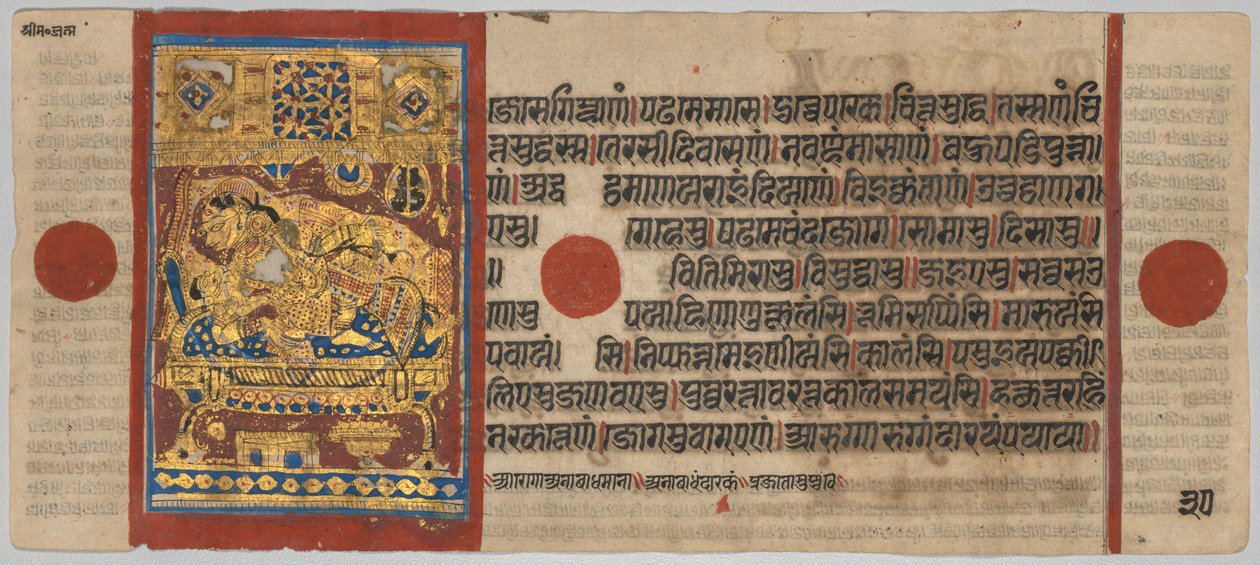 श्रीम०जन्म
जे से गिम्हाणं। पढमे मासे। दोच्चे पक्खे। चित्तसुद्धे। तस्स णं चि
त्तसुद्धस्स। तेरसीदिवसेणं। नवण्हं मासाणं। बहुपडिपुन्ना।
णं। अद्ध ट्ठमाणयराइंदियाणं। विइक्कंताणं। उच्चट्ठाणग।
एसु। गहेसु। पढमे चंदजोगे। सोमासु। दिसासु॥
॥ वितिमिरासु। विसुद्धासु॥ जइएसु। सव्वसउ
णेसु पयाहिणाणुकूलंसि। भूमिसप्पिंसि। मारुयंसि
पवायं। सि। निप्फन्नमेइणीयंसि। कालंसि। पमुइयपक्की।
लिएसु जणवएसु। पुव्वरत्तावरत्तकालसमयंसि। हत्थुत्तराहिं
नक्खत्तेणं। जोगमुवागएणं। आरुग्गारुग्गं दारयं पयाया॥
॥आरोगाअनाबाधमाना॥ अनाबाधंदारकं॥ प्रजातासुषुवे॥
३०